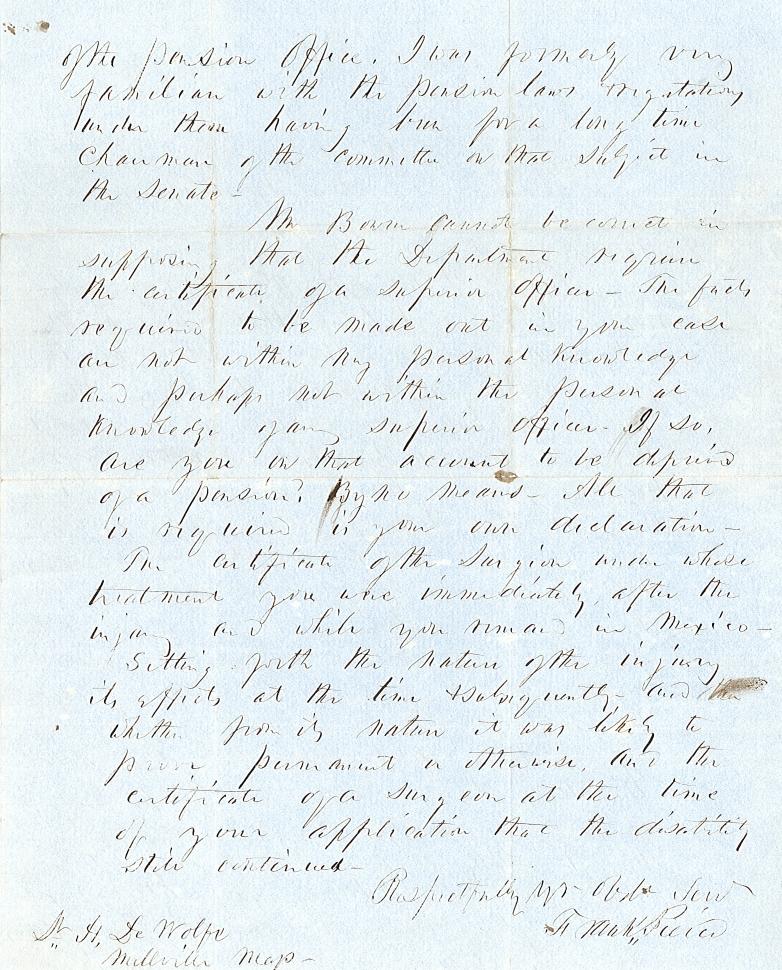 of the Pension Office. I was formerly very
familiar with the pension laws & regulations
under them having been for a long time
Chairman of the Committee on that subject in
the Senate -
Mr Bowen cannot be correct in
supposing that the Department require
the certificate of a superior officer - The facts
required to be made out in your case
are not within my personal knowledge
and perhaps not within the personal
knowledge of any superior officer - If so,
are you on that account to be deprived
of a pension? By no means - All that
is required is your own declaration -
The certificate of the surgeon under whose
treatment you were immediately after the
injury and while you remained in Mexico -
Setting forth the nature of the injury
its effects at the time & subsequently - and
whether from its nature it was likely to
prove permanent or otherwise, and the
certificate of a surgeon at the time
of your application that the disability
still continued -
Respectfully Yr Obdt Servt
Frank Pierce
H. De Wolfe
Millville Mass -